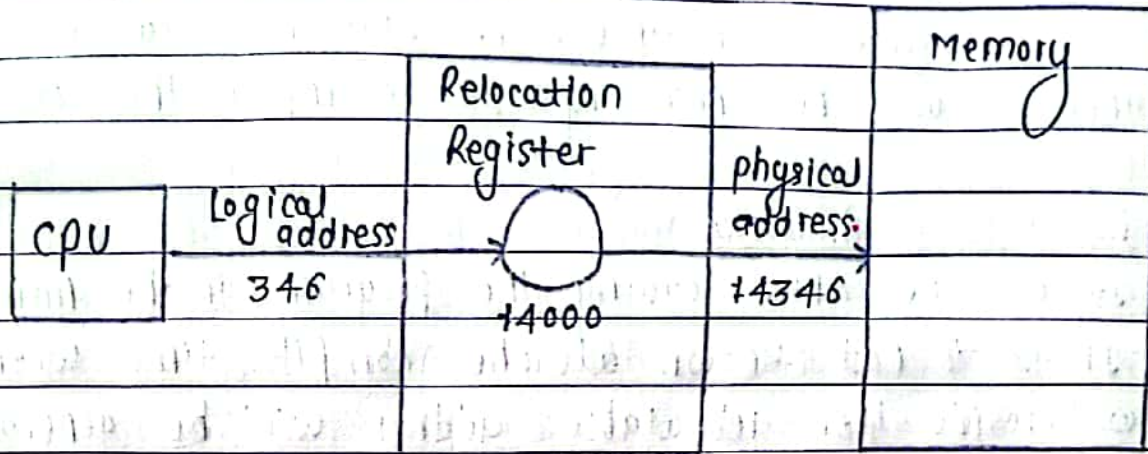 Memory
Relocation
Register
CPU
Logical
address
346
14000
physical
address.
14346